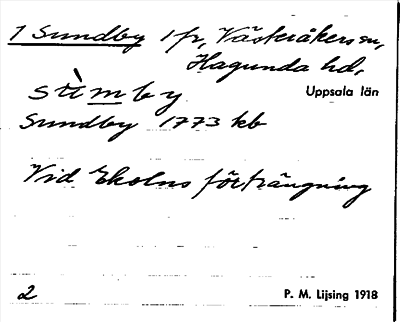 1 Sundby 1 fr, Västeråkers sn,
Hagunda hd,
sùmby Uppsala län
Sundby 1773 kb
Vid Ekolns förträngning
2 P. M. Lijsing 1918